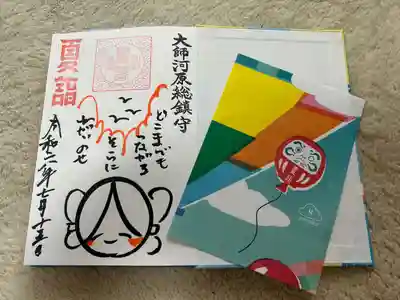 大師河原総鎮守
どこまでも
つながる
そらに
ねがいのせ
夏詣
令和二年七月十五日